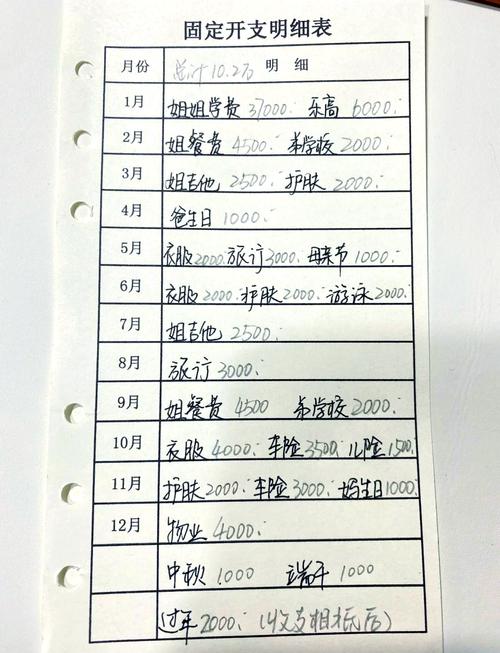 固定开支明细表
月份 总计10.2万 明 细
1月 姐姐学费 37000. 乐高 6000.
2月 姐餐费 4500. 弟学校 2000.
3月 姐吉他 2500. 护肤 2000.
4月 爸生日 1000.
5月 衣服2000. 旅订3000. 母亲节 1000.
6月 衣服 2000. 护肤2000. 游泳 2000.
7月 姐吉他 2500.
8月 旅订 3000.
9月 姐餐费 4500 弟学校 2000.
10月 衣服 4000. 车险3500. 儿险1500.
11月 护肤2000. 车险3000. 妈生日1000.
12月 物业 4000.
中秋 1000 端午 1000
过年 2000. (收支相抵后)